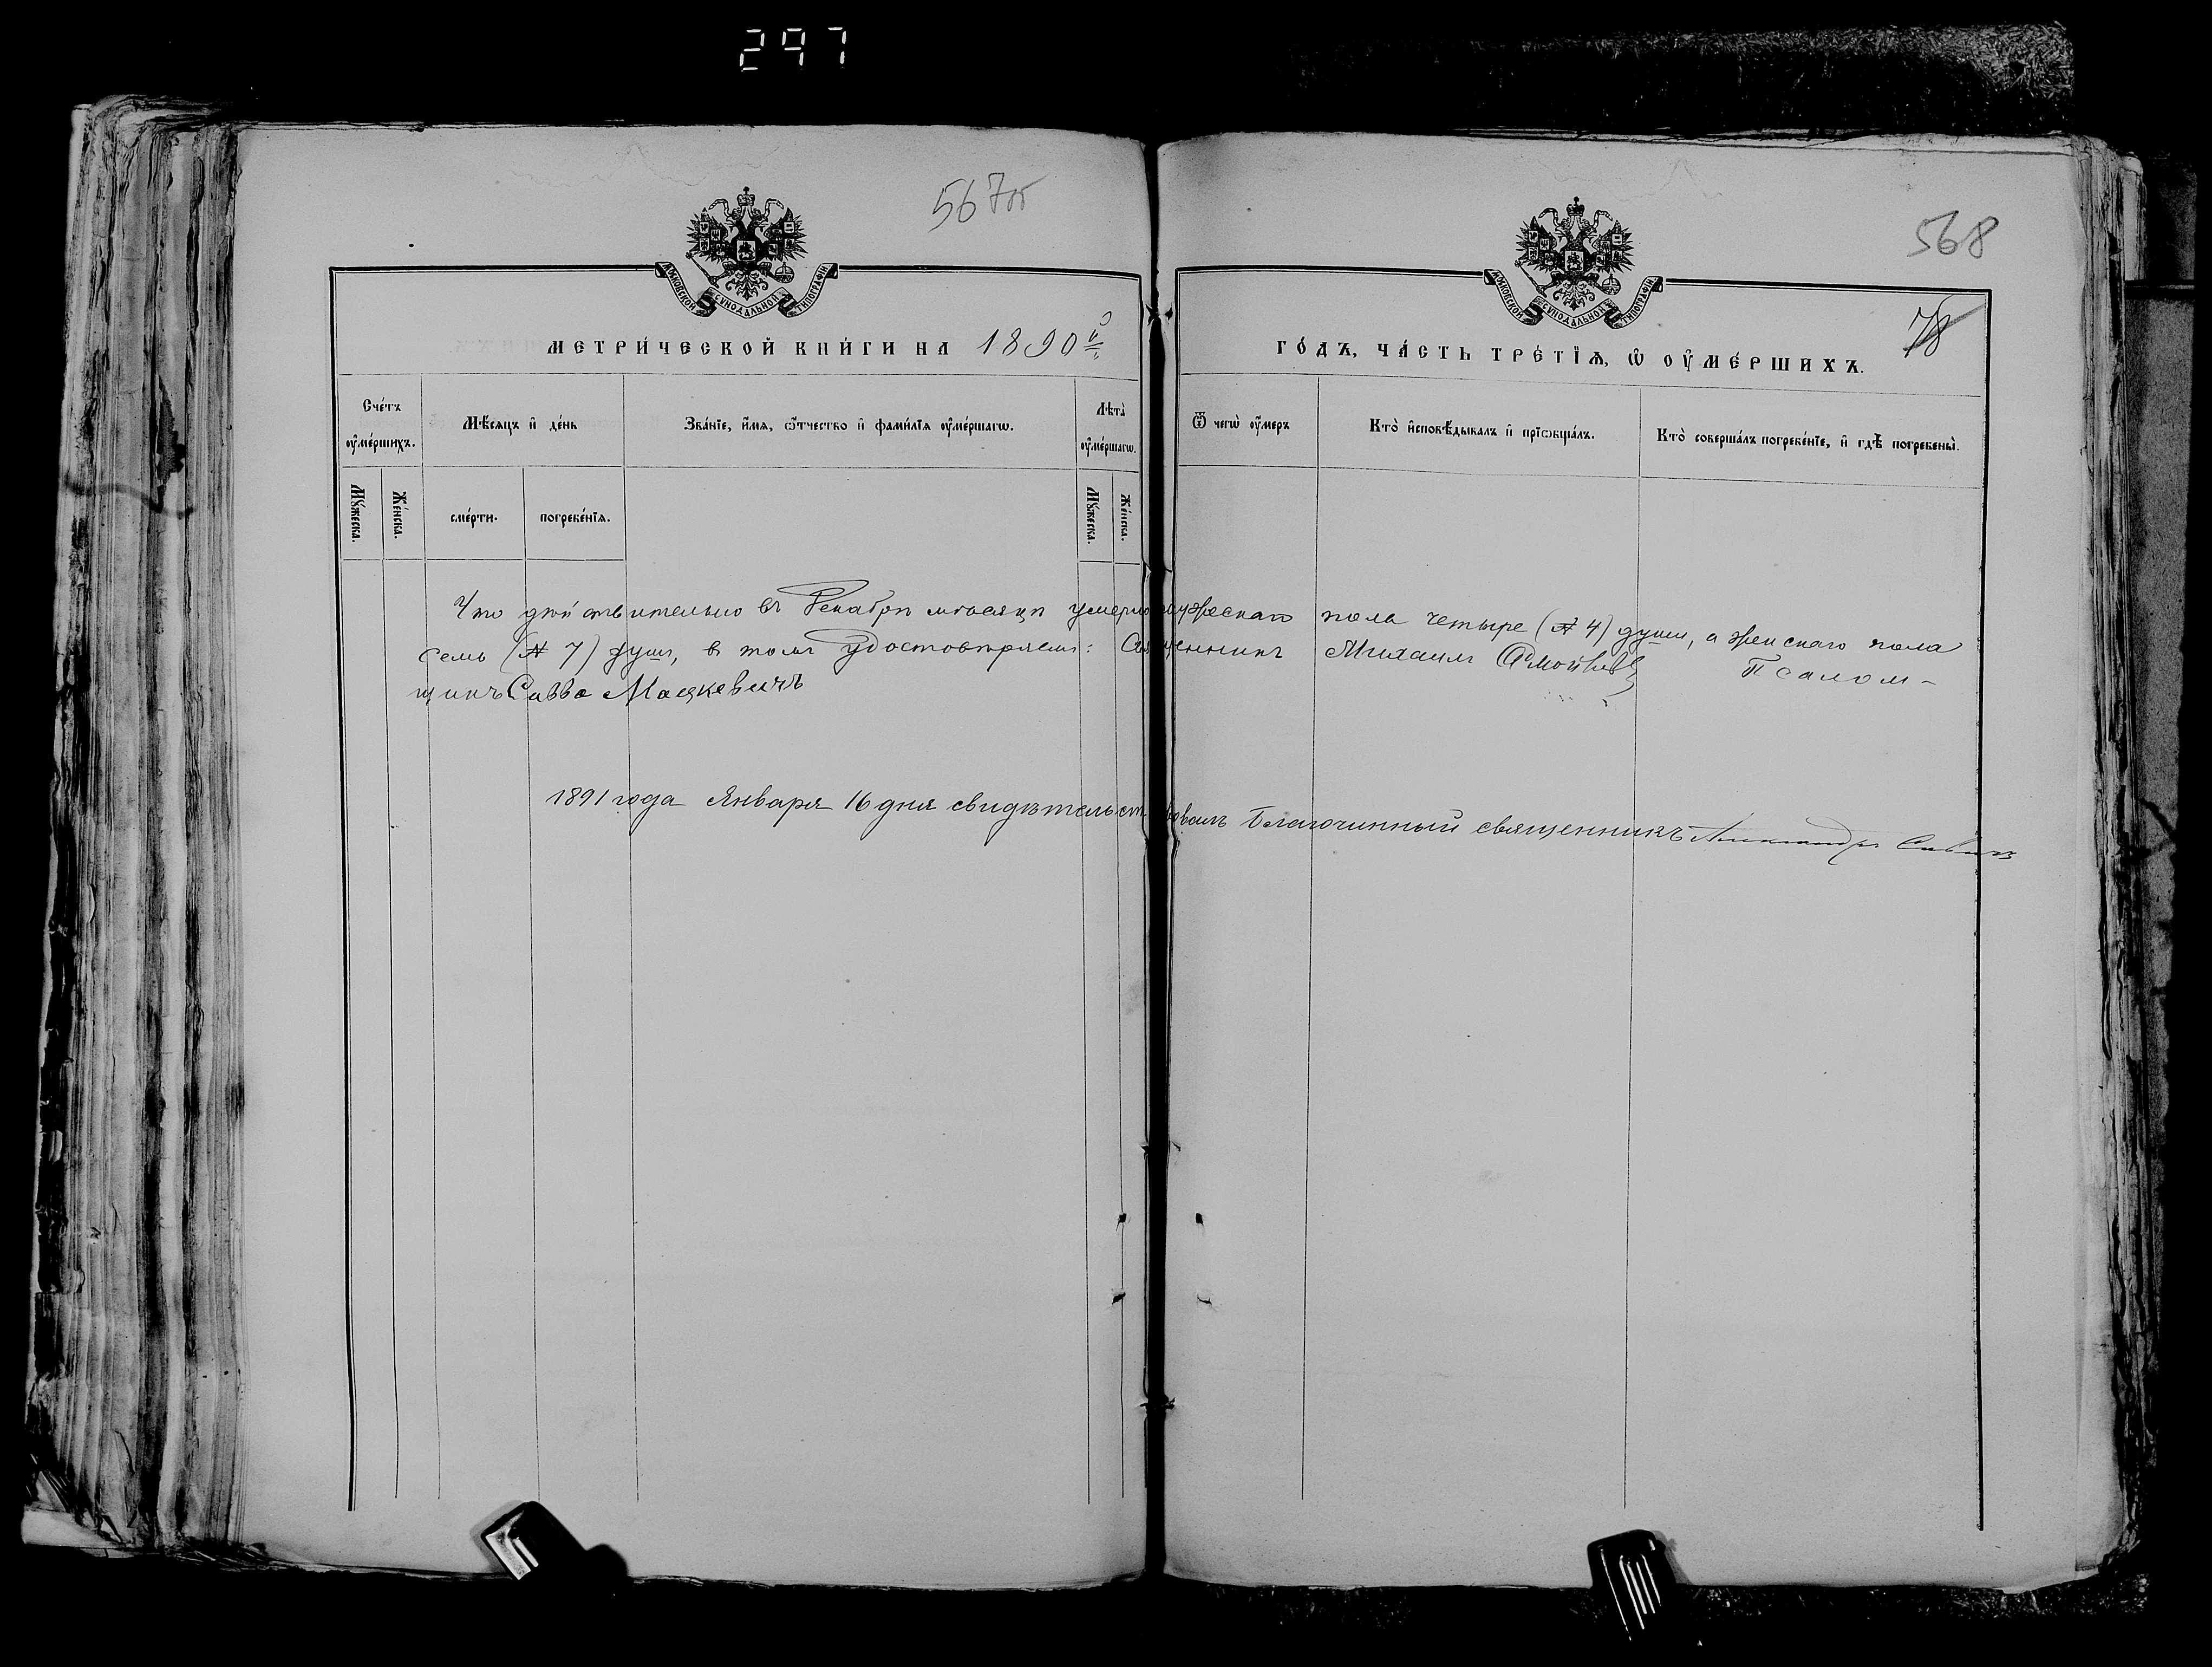 297
567об
568
78
МОСКОВСКОЙ СУНОДАЛЬНОЙ ТИПОГРАФІИ
МОСКОВСКОЙ СУНОДАЛЬНОЙ ТИПОГРАФІИ
МЕТРИ́ЧЕСКОЙ КНИ́ГИ НА 1890й
ГО́ДЪ, ЧА́СТЬ ТРЕ́ТІѦ, Ѡ ОУ҆МЕ́РШИХЪ.
Сче́тъ оу҆ме́ршихъ.
Мѣ́сяцъ и҆ де́нь
Зва́ніе, и҆́мѧ, ѿтчество и҆ фами́лїѧ оу҆ме́ршагѡ.
Лѣта̀ оу҆ме́ршагѡ.
Ѿ чегѡ̀ оу҆́меръ
Кто̀ и҆сповѣ́дывалъ и҆ прїѡбща́лъ.
Кто̀ соверша́лъ погребе́нїе, и҆ гдѣ̀ погребены̀.
Мꙋ́жеска.
Же́нска.
сме́рти.
погребе́нїѧ.
Мꙋ́жеска.
Же́нска.
Что действительно въ Декабрѣ мѣсяцѣ умерло мужескаго пола четыре (№ 4) души, а женскаго пола
семь (№ 7) душъ, въ томъ удостовѣряемъ: Священникъ Михаилъ Псалом-
щикъ Савва Мацкевичъ
1891 года Января 16 дня свидѣтельствовалъ Благочинный священникъ Александръ